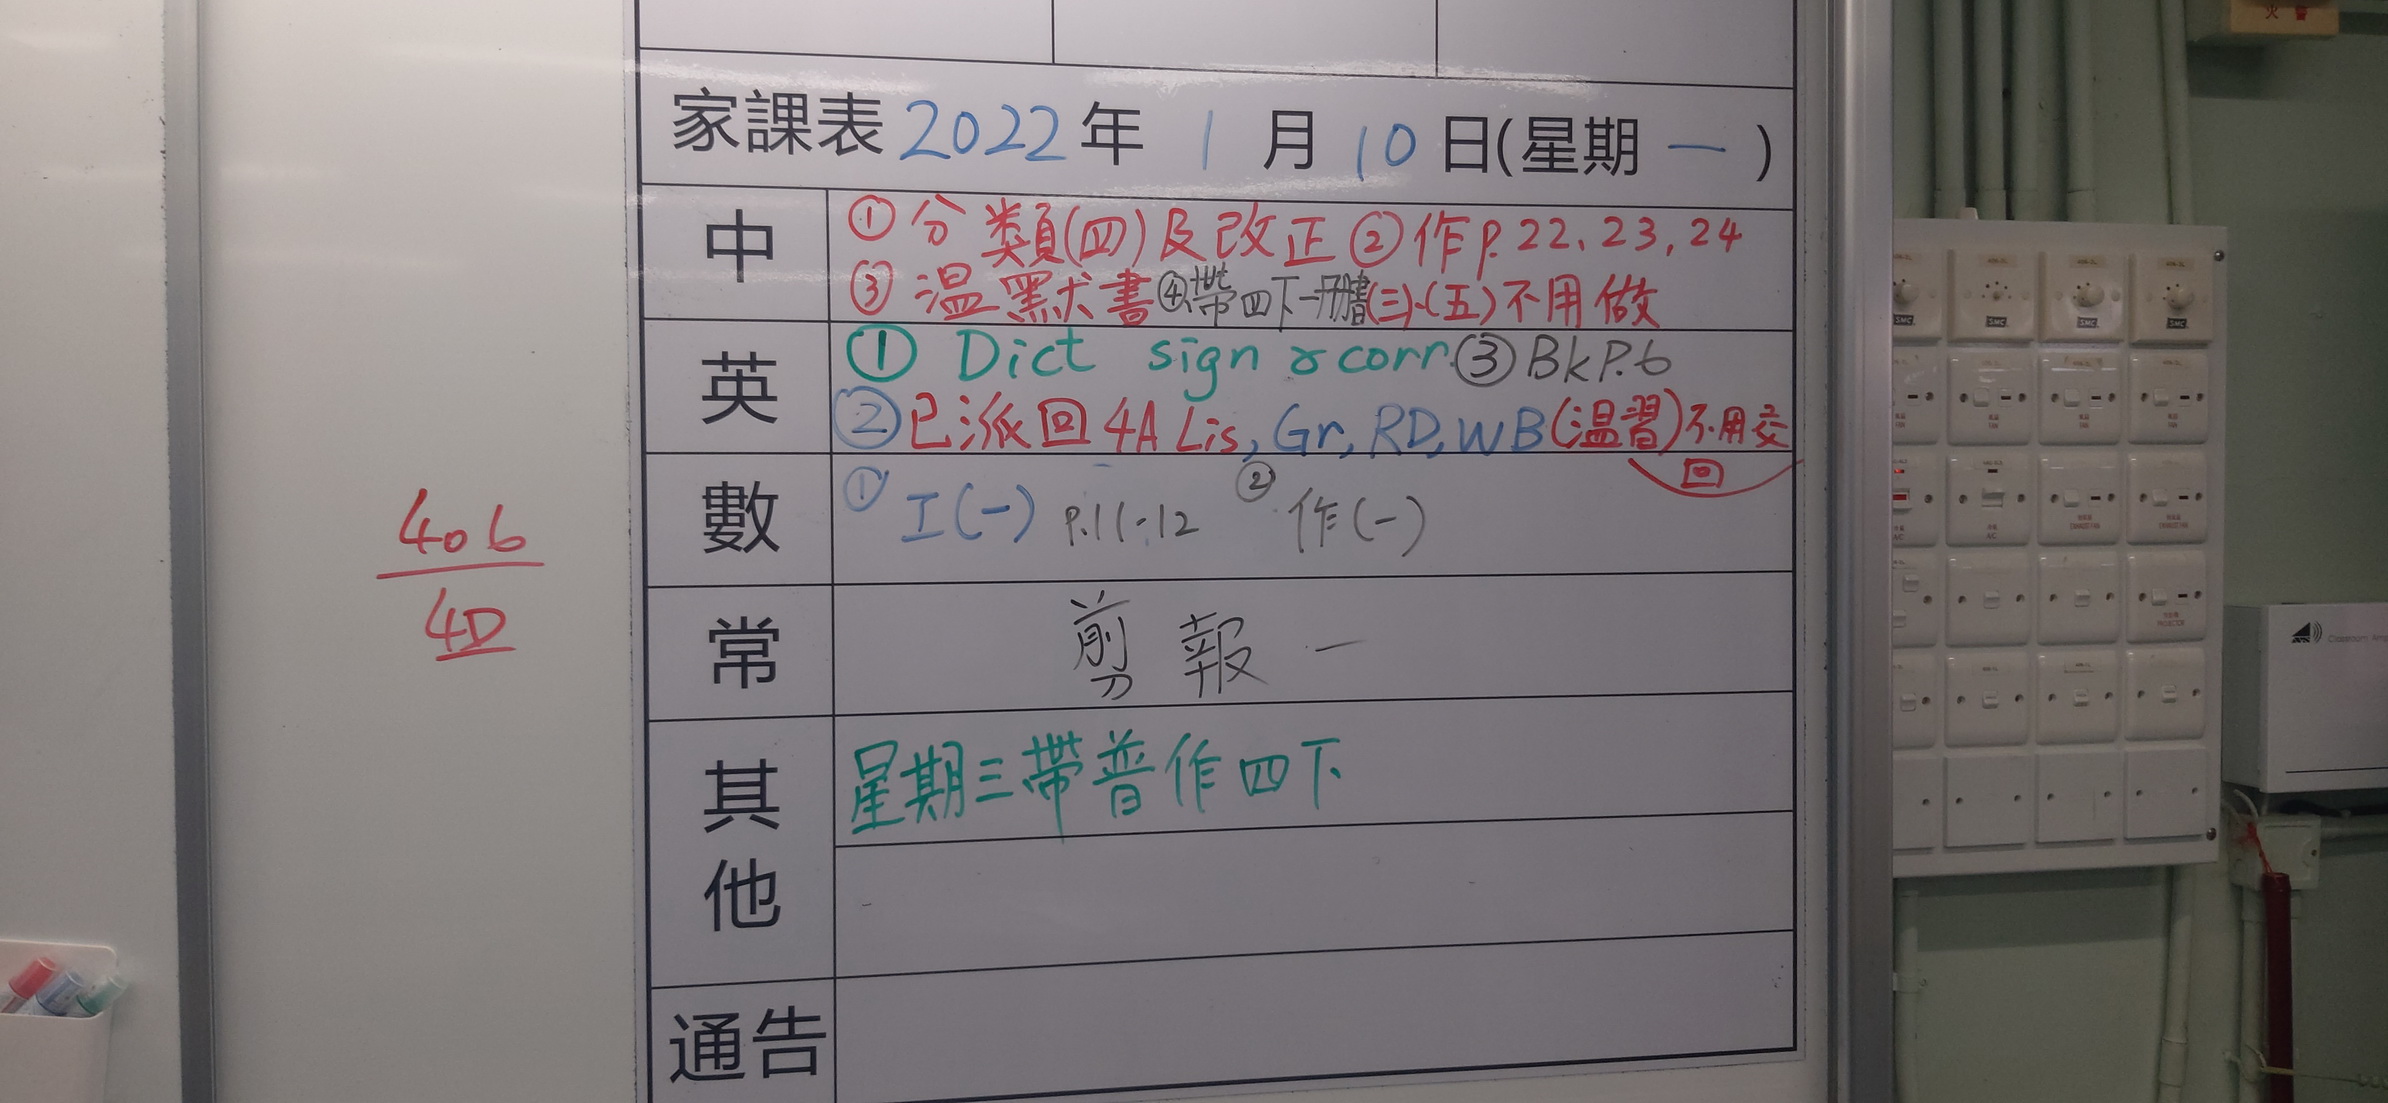 家課表 2022 年 1 月 10 日(星期 一 )
中
① 分類(四)及改正 ② 作 P. 22、23, 24
③ 温默書 ④ 帶四下一冊書 (三)、(五) 不用做
英
① Dict sign & corr. ③ Bk P.6
② 已派回 4A Lis, Gr, RD, WB (温習) 不用交
回
數
① 工(一) P.11-12 ② 作(一)
常
剪報一
其他
星期三帶普作四下
通告
406
4D
Classroom Amp